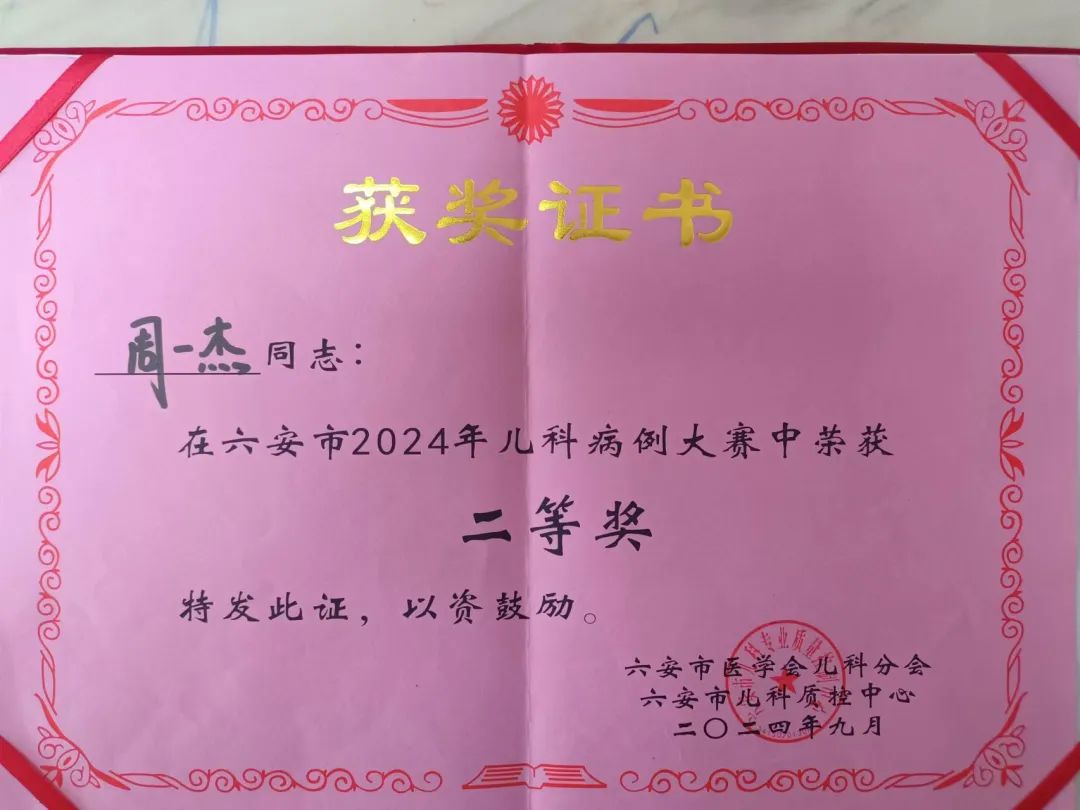 获奖证书
周一杰同志：
在六安市2024年儿科病例大赛中荣获
二等奖
特发此证，以资鼓励。
六安市医学会儿科分会
六安市儿科质控中心
二〇二四年九月